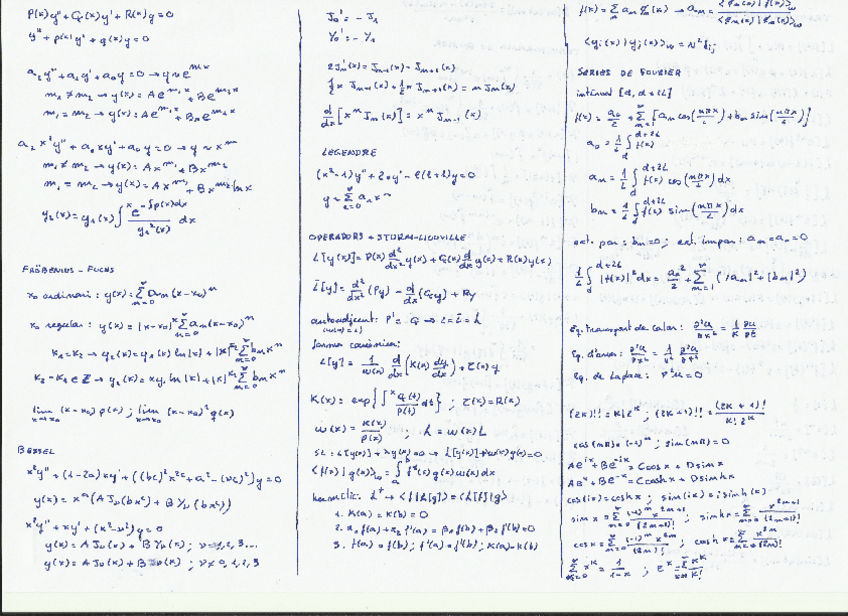 P(x)y'' + Q(x)y' + R(x)y = 0
y'' + p(x)y' + q(x)y = 0
a₂y'' + a₁y' + a₀y = 0 → y ~ e^{mx}
m₁ ≠ m₂ → y(x) = A e^{m₁x} + B e^{m₂x}
m₁ = m₂ → y(x) = A e^{m₁x} + B x e^{m₂x}
a₂x²y'' + a₁xy' + a₀y = 0 → y ~ x^m
m₁ ≠ m₂ → y(x) = A x^{m₁} + B x^{m₂}
m₁ = m₂ → y(x) = A x^{m₁} + B x^{m₂} ln x
y₂(x) = y₁(x) ∫^x e^{-∫p(x)dx} / y₁²(x) dx
FRÖBENIUS - FUCHS
x₀ ordinari: y(x) = Σ_{n=0}^∞ aₙ(x-x₀)ⁿ
x₀ regular: y(x) = |x-x₀|^k Σ_{n=0}^∞ aₙ(x-x₀)ⁿ
k₁ = k₂ → y₂(x) = y₁(x) ln|x| + |x|^{k₂} Σ_{n=0}^∞ bₙxⁿ
k₂ - k₁ ∈ Z → y₂(x) = α y₁ ln|x| + |x|^{k₂} Σ_{n=0}^∞ bₙxⁿ
lim_{x→x₀} (x-x₀) p(x) ; lim_{x→x₀} (x-x₀)² q(x)
BESSEL
x²y'' + (1-2a)xy' + ((bc)²x^{2c} + a² - (νc)²)y = 0
y(x) = x^a (A J_ν(bx^c) + B Y_ν(bx^c))
x²y'' + xy' + (x²-ν²)y = 0
y(x) = A J_ν(x) + B Y_ν(x) ; ν = 0, 1, 2, 3...
y(x) = A J_ν(x) + B J_{-ν}(x) ; ν ≠ 0, 1, 2, 3
J₀' = - J₁
Y₀' = - Y₁
2J_n'(x) = J_{n-1}(x) - J_{n+1}(x)
½x J_{n+1}(x) + ½x J_{n-1}(x) = n J_n(x)
d/dx [xⁿ J_n(x)] = xⁿ J_{n-1}(x)
LEGENDRE
(x²-1)y'' + 2xy' - l(l+1)y = 0
y = Σ_{n=0}^∞ aₙxⁿ
OPERADORS + STURM-LIOUVILLE
L[y(x)] = P(x) d²/dx² y(x) + Q(x) d/dx y(x) + R(x)y(x)
L̄[y] = d²/dx² (Py) - d/dx (Qy) + Ry
autoadjunt: P' = Q → L = L̄ = L
(w(x) = 1)
forma canònica:
L[y] = 1/w(x) d/dx (K(x) dy/dx) + τ(x)y
K(x) = exp{∫^x Q(t)/P(t) dt} ; τ(x) = R(x)
w(x) = K(x)/P(x) ; L = w(x)L
SL: L[y(x)] + λy(x) = 0 → L[y(x)] + λw(x)y(x) = 0
⟨f(x)|g(x)⟩_w = ∫_a^b f*(x)g(x)w(x)dx
hermític: L† → ⟨f|L[g]⟩ = ⟨L[f]|g⟩
1. K(a) = K(b) = 0
2. α₁f(a) + α₂f'(a) = β₁f(b) + β₂f'(b) = 0
3. f(a) = f(b) ; f'(a) = f'(b) ; K(a) = K(b)
⟨yᵢ(x)|yⱼ(x)⟩_w = N²δᵢⱼ
SERIES DE FOURIER
interval [d, d+2L]
f(x) = a₀/2 + Σ_{n=1}^∞ [aₙ cos(nπx/L) + bₙ sin(nπx/L)]
a₀ = 1/L ∫_d^{d+2L} f(x)
aₙ = 1/L ∫_d^{d+2L} f(x) cos(nπx/L) dx
bₙ = 1/L ∫_d^{d+2L} f(x) sin(nπx/L) dx
ext. par: bₙ = 0 ; ext. impar: a₀ = aₙ = 0
1/L ∫_d^{d+2L} |f(x)|² dx = a₀²/2 + Σ_{n=1}^∞ (|aₙ|² + |bₙ|²)
Eq. transport de calor: ∂²u/∂x² = 1/k ∂u/∂t
Eq. d'ones: ∂²u/∂x² = 1/v² ∂²u/∂t²
Eq. de Laplace: ∇²u = 0
(2k)!! = k! 2^k ; (2k+1)!! = (2k+1)! / k! 2^k
cos(nπ) = (-1)ⁿ ; sin(nπ) = 0
Ae^{ix} + Be^{-ix} = C cos x + D sin x
Ae^x + Be^{-x} = C cosh x + D sinh x
cos(ix) = cosh x ; sin(ix) = i sinh(x)
sin x = Σ_{n=0}^∞ (-1)ⁿ x^{2n+1} / (2n+1)! ; sinh x = Σ x^{2n+1} / (2n+1)!
cos x = Σ_{n=0}^∞ (-1)ⁿ x^{2n} / (2n)! ; cosh x = Σ x^{2n} / (2n)!
Σ_{k=0}^∞ x^k = 1/(1-x) ; e^x = Σ x^k / k!